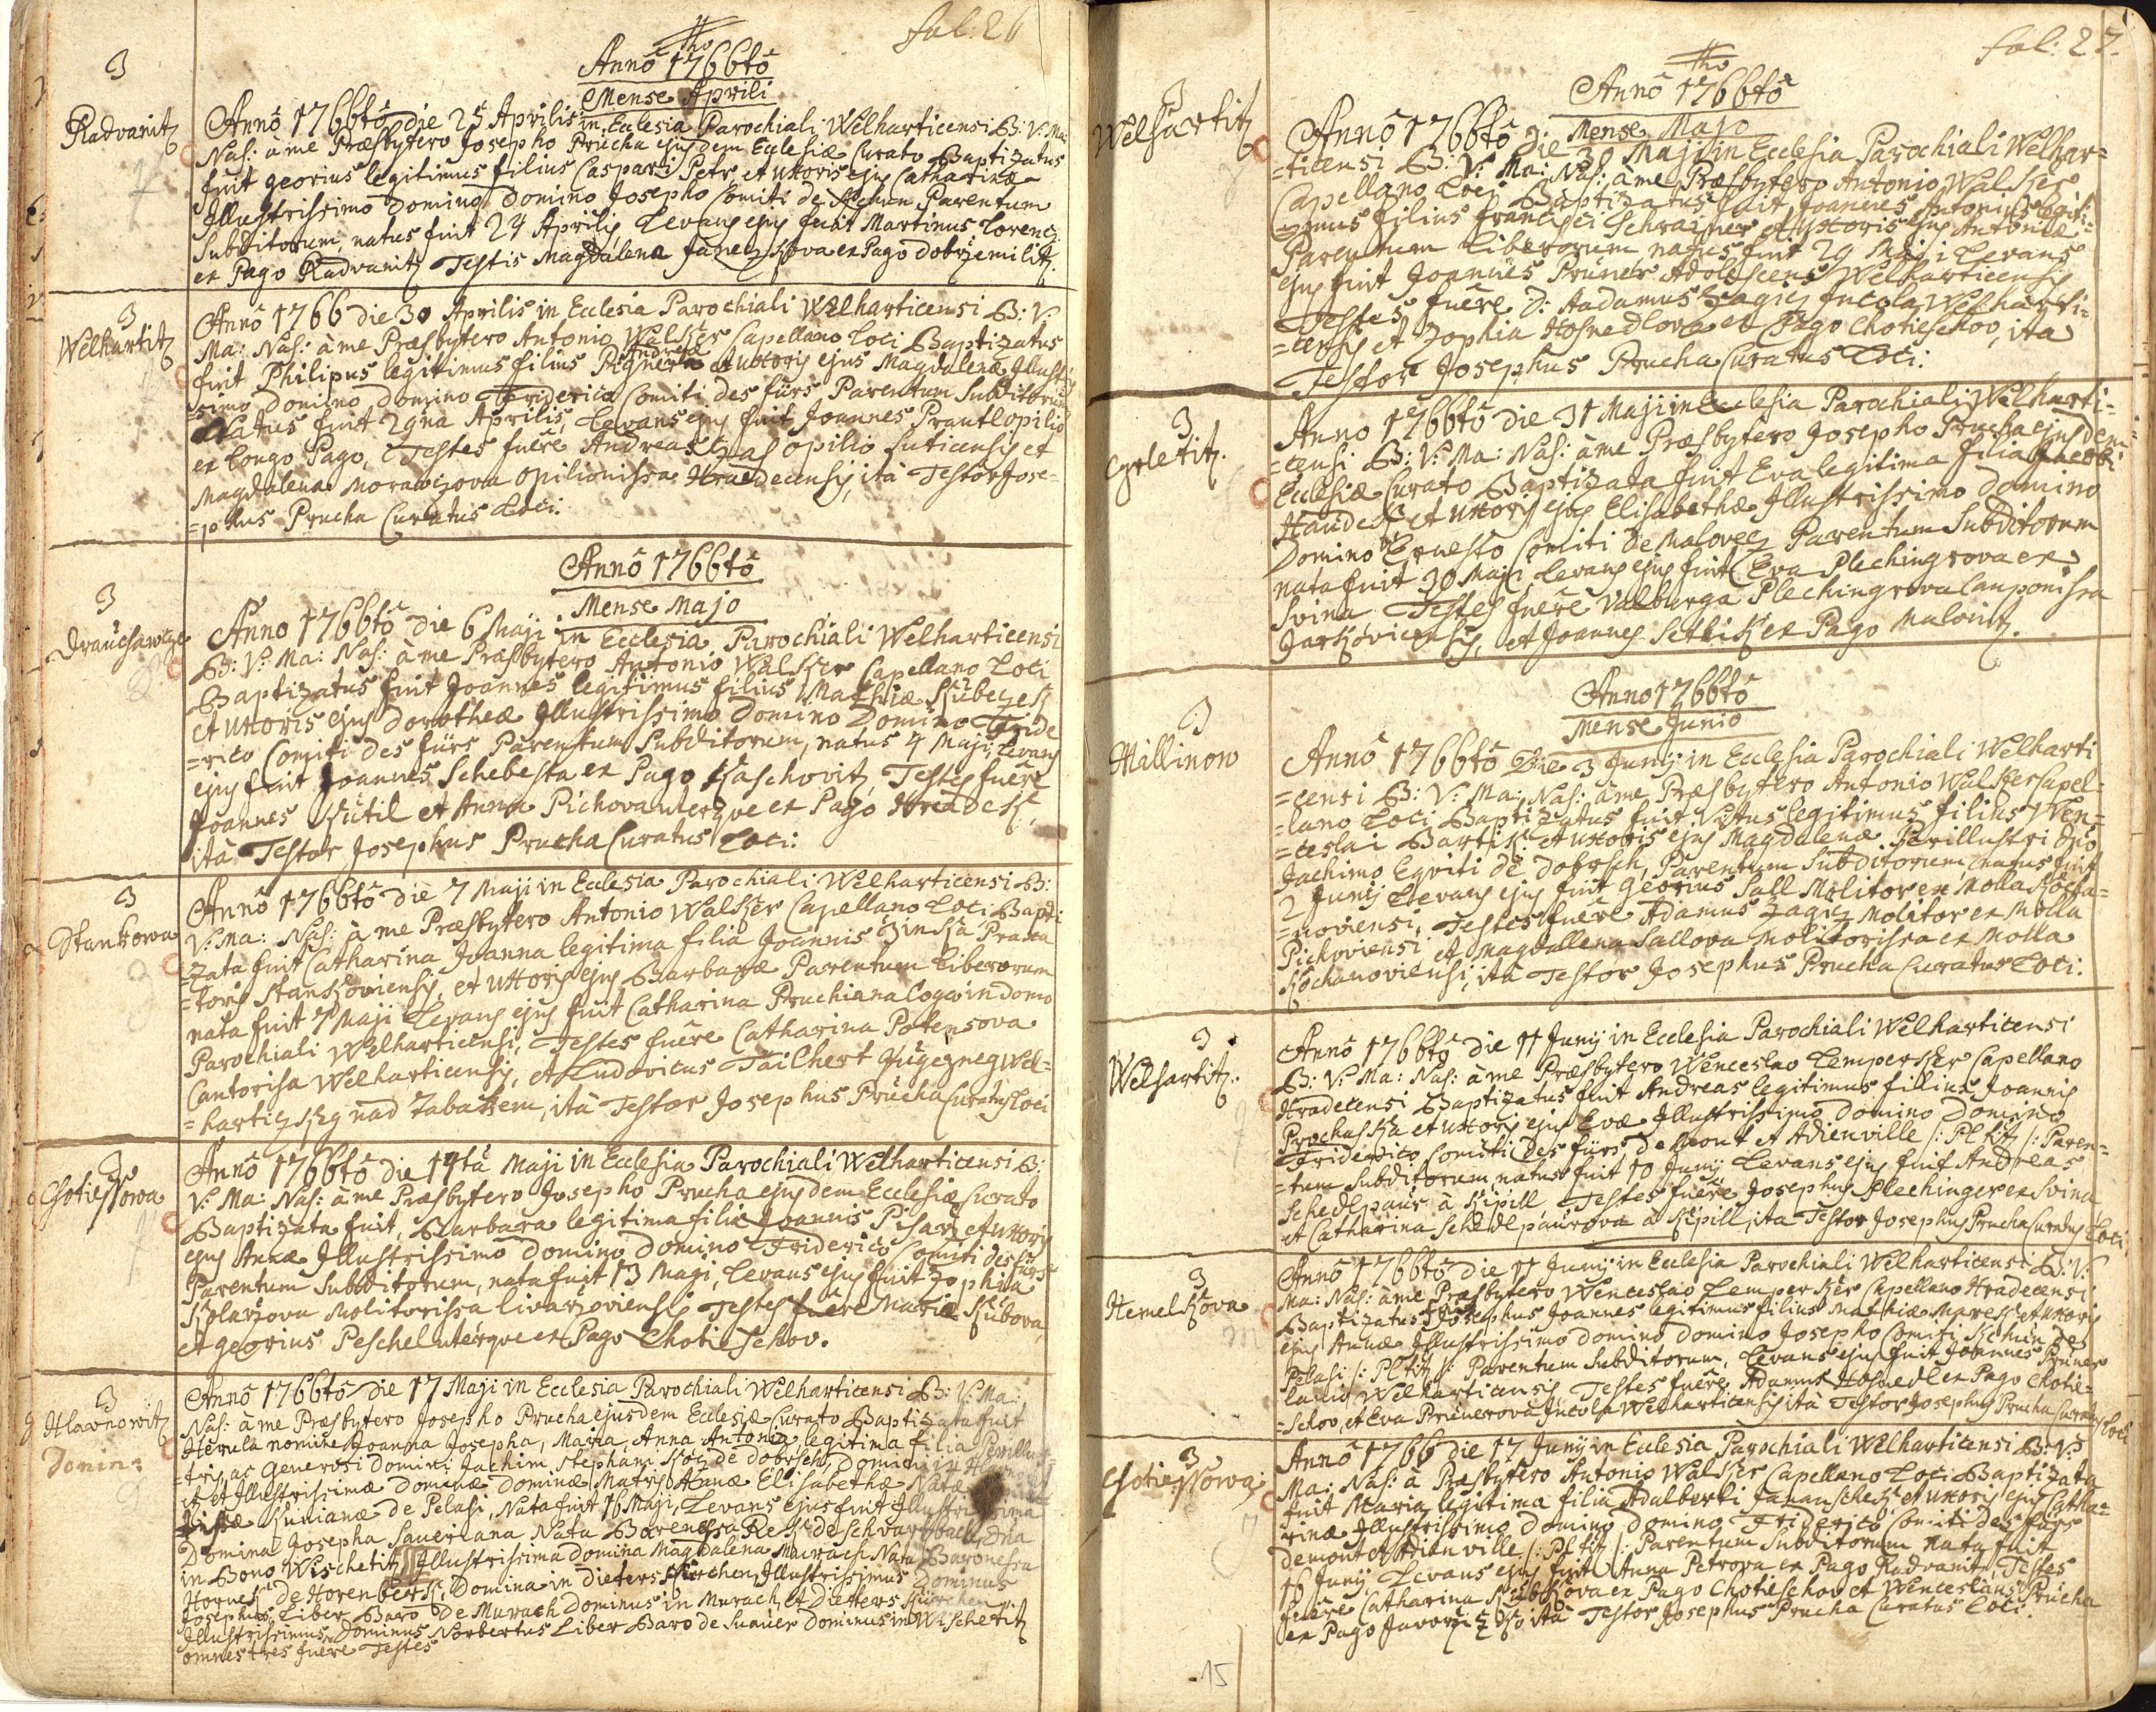 fol: 26
Annô 1766tô
Mense Aprili
3
Radvanitz
Annô 1766tô die 25 Aprilis in Eclesia Parochiali Welharticensi B: V: Ma:
Nas: à me Præsbytero Josepho Prucha ejusdem Eclesiæ Curato Baptizatus
fuit georius legitimus filius Caspari Petr et uxoris ejus Catharinæ
Illustrissimo Domino Domino Josepho Comiti de Parentum
Subditorum, natus fuit 24 Aprilis Levans ejus fuit Martinus Lorenz
ex Pago Radvanitz Testis Magdalena ex Pago dobrzemilitz.
3
Welhartitz
Annô 1766 die 30 Aprilis in Eclesia Parochiali Welharticensi B: V:
Ma: Nas: à me Præsbytero Antonio Walker Capellano Loci Baptizatus
fuit Philipus legitimus filius Andreæ et uxoris ejus Magdalenæ Illustris
simo Domino Domino Friderico Comiti des fürs Parentum Subditorum
Natus fuit 29na Aprilis, Levans ejus fuit Joannes Prantl opilio
ex Longo Pago, Testes fuêre Andreas opilio Luticensis et
Magdalena Morawczova opilionissa Hradecensis, ità Testor Jose-
=phus Prucha Curatus Loci.
Annô 1766tô
Mense Majo
3
Drauhawcze
Anno 1766tô die 6 Maji in Ecclesia Parochiali Welharticensi
B: V: Ma: Nas: à me Præsbytero Antonio Walker Capellano Loci
Baptizatus fuit Joannes legitimus filius Mathiæ Kubeczek
et uxoris ejus Dorotheæ Illustrissimo Domino Domino Fride
=rico Comiti des fürs Parentum Subditorum, natus 4 Maji, Levans
ejus fuit Joannes Schebesta ex Pago Kaschovitz, Testes fuêre
Joannes Kutil et Anna Pichova uterque ex Pago Hradek,
ità Testor Josephus Prucha Curatus Loci:
3
Stankowa
Annô 1766tô die 7 Maji in Ecclesia Parochiali Welharticensi B:
V: Ma: Nas: à me Præsbytero Antonio Walker Capellano Loci Bapti
=zata fuit Catharina Joanna legitima filia Joannis
=toris Stankoviensis, et uxoris ejus Barbaræ Parentum Liberorum
nata fuit 7 Maji Levans ejus fuit Catharina Pruchiana Coqua in domo
Parochiali Welharticensi, Testes fuêre Catharina Potensova
Cantorisa Welharticensis, et Ludovicus Tailhert Wel=
=hartizky nad Zabakem, ità Testor Josephus Prucha Curatus Loci
3
Chotiessowa
Annô 1766tô die 14ta Maji in Ecclesia Parochiali Welharticensi B:
V: Ma: Nas: à me Præsbytero Josepho Prucha ejusdem Ecclesiæ Curato
Baptizata fuit, Barbara legitima filia Joannis Pisarz et uxoris
ejus Annæ Illustrissimo Domino Domino Friderico Comiti des fürs
Parentum Subditorum, nata fuit 13 Maji, Levans ejus fuit Zophia
Kolarzova Molitorissa livarzoviensis Testes fuêre Maria Kubova,
et georius Peschel uterque ex Pago Chotieschov.
3
Hlawnowitz
Domin:
Annô 1766tô die 17 Maji in Ecclesia Parochiali Welharticensi B: V: Ma:
Nas: à me Præsbytero Josepho Prucha ejusdem Ecclesiæ Curato Baptizata fuit
Herula nomine Joanna Josepha, Maria, Anna Antonia legitima filia Perillus
=tris, ac Generosi Domini Jachim Stephani Koc de dobrsch, Domini in
et Illustrissimæ Dominæ Dominæ Matris Annæ Elisabethæ Natæ
Kunianæ de Pelasi, Nata fuit 16 Maji, Levans ejus fuit Illustrissima
Domina Josepha Saueriana Nata Baronessa de Schvarzbach, Dna
in Bono Wischetitz Illustrissima Domina Magdalena Murach Nata Baronessa
Hornek de Horenberk, Domina in Dieterskirchen, Illustrissimus Dominus
Josephus Liber Baro De Murach Dominus in Murach et Dietterskürchen
Illustrissimus Dominus Norbertus Liber Baro de Suauer Dominus in Wischetitz
omnes tres fuêre Testes
fol: 27.
Annô 1766tô
Mense Majo
3
Welhartitz
Annô 1766tô die 30 Maji in Ecclesia Parochiali Welhar=
=ticensi B: V: Ma: Nas: à me Præsbytero Antonio Walker
Capellano Loci Baptizatus fuit Joannes Antonius legiti=
=mus filius francisci Schrainer et uxoris ejus Antoniæ
Parentum Liberorum, natus fuit 29 Maji Levans
ejus fuit Joannes Pruner Adolescens Welharticensis
Testes fuêre D: Aadamus Zagicz Incola Welharti=
=censis et Zophia Hosnedlova ex Pago Chotieschov, ita
Testor Josephus Prucha Curatus Loci:
3
Cgrletitz.
Anno 1766tô die 31 Maji in Ecclesia Parochiali Welharti=
=censi B: V: Ma: Nas: à me Præsbytero Josepho Prucha ejusdem
Ecclesiæ Curato Baptizata fuit Eva legitima filia Jacobi
Haudek et uxoris ejus Elisabethæ Illustrissimo Domino
Domino Ernesto Comiti de Malovecz Parentum Subditorum
nata fuit 30 Maji, Levans ejus fuit Eva Plechingrova ex
Svina Testes fuêre Valburga Plechingrova Cauponissa
Jarkovicensis, et Joannes Setlik ex Pago Malonitz.
Anno 1766tô
Mense Junio
3
Millinow
Annô 1766tô Die 3 Junij in Ecclesia Parochiali Welharti
=censi B: V: Ma: Nas: à me Præsbytero Antonio Walker Capel=
=lano Loci Baptizatus fuit Vitus legitimus filius Wen=
=ceslai Bartik et uxoris ejus Magdalenæ Perillustri Dno
Jachimo Eqviti de dobrsch, Parentum Subditorum, natus fuit
2 Junij Levans ejus fuit georius Sall Molitor ex Molla Kocha=
=noviensi, Testes fuêre Adamus Zagicz Molitor ex Molla
Pichoviensi et Magdallena Sallova Molitorissa ex Molla
Kochanoviensi, ità Testor Josephus Prucha Curatus Loci:
3
Welhartitz.
Annô 1766tô die 11 Junij in Ecclesia Parochiali Welharticensi
B: V: Ma: Nas: à me Præsbytero Wenceslao Lemperker Capellano
Hradecensi Baptizatus fuit Andreas legitimus filius Joannis
Prochaska et uxoris ejus Evæ Illustrissimo Domino Domino
Friderico Comiti Des fürs, de Mont et Adienville /: Pl tit /: Paren=
=tum Subditorum, natus fuit 10 Junij Levans ejus fuit Andreas
Schedlpaur à Kipill Testes fuêre Josephus Plechinger ex Svina
et Catharina Schedlpaurova à Kipill, ita Testor Josephus Prucha Curatus Loci
3
Hemelkova
Annô 1766tô die 11 Junij in Ecclesia Parochiali Welharticensi B: V:
Ma: Nas: à me Præsbytero Wenceslao Lemperker Capellano Hradecensi
Baptizatus Josephus Joannes legitimus filius Mathiæ Maresch et uxoris
ejus Annæ Illustrissimo Domino Domino Josepho Comiti Kchuin de
Pelasi /: Pl tit /: Parentum Subditorum, Levans ejus fuit Joannes Pruner
lanio Welharticensis, Testes fuêre Adamus Hosnedl ex Pago Chotie=
=schov, et Eva Prunerova Incola Welharticensis ità Testor Josephus Prucha Curatus Loci
3
Chotiessowa
Annô 1766 die 17 Junij in Ecclesia Parochiali Welharticensi B: V:
Ma: Nas: à Præsbytero Antonio Walker Capellano Loci Baptizata
fuit Maria legitima filia Adalberti et uxoris ejus Catha=
rinæ Illustrissimo Domino Domino Friderico Comiti des fürs
demont et Adienville /: Pl tit /: Parentum Subditorum nata fuit
16 Junij Levans ejus fuit Anna Petrova ex Pago Radvanitz, Testes
fuêre Catharina ex Pago Chotieschov et Wenceslaus Prucha
ex Pago ità Testor Josephus Prucha Curatus Loci.
15